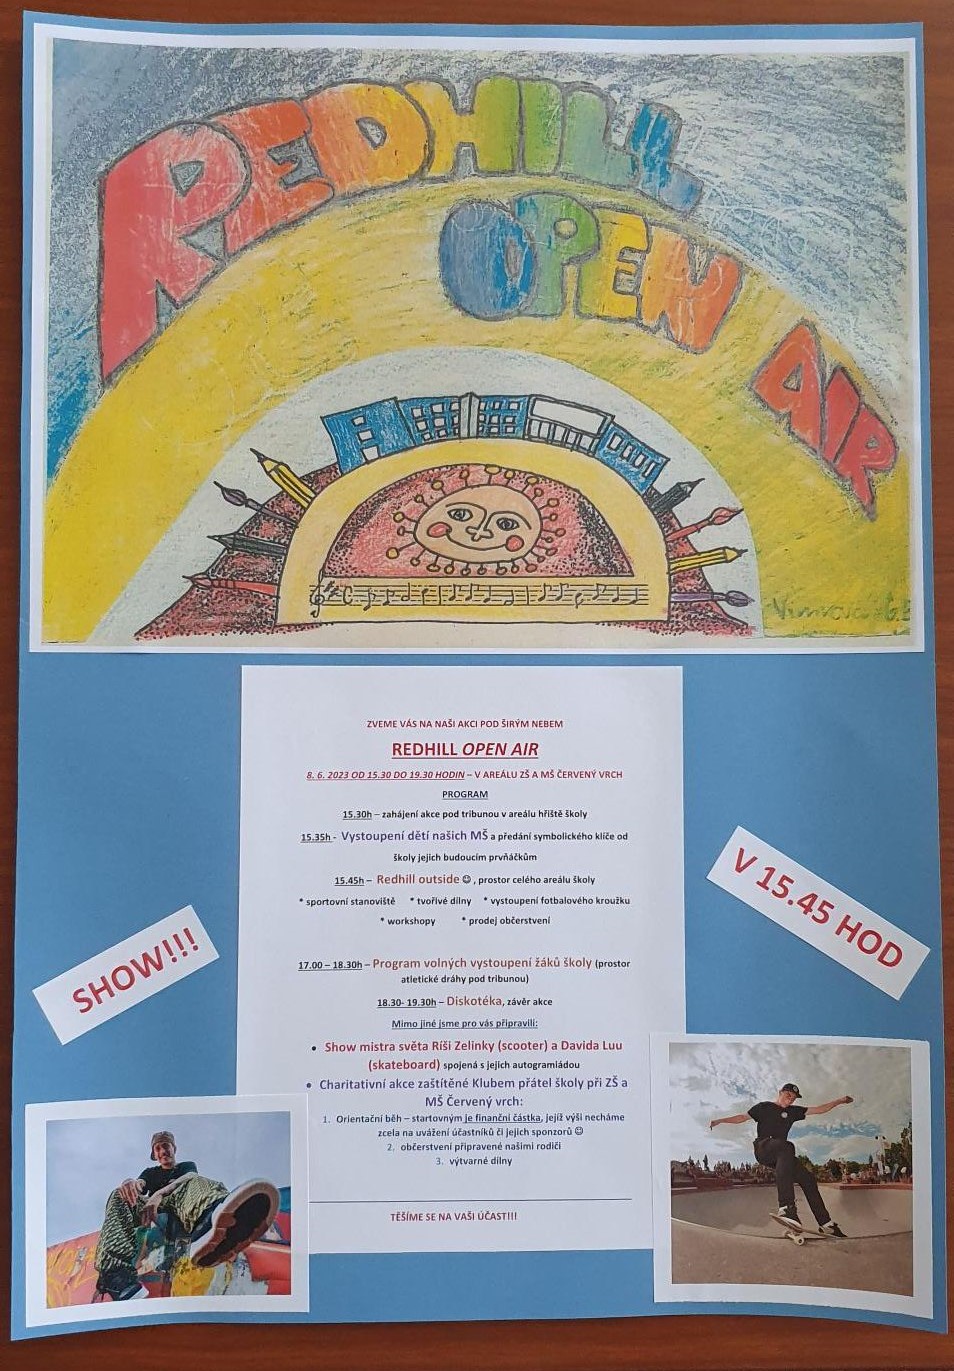 REDHILL
OPEN
AIR
ZVEME VÁS NA NAŠI AKCI POD ŠIRÝM NEBEM
REDHILL OPEN AIR
8. 6. 2023 OD 15.30 DO 19.30 HODIN – V AREÁLU ZŠ A MŠ ČERVENÝ VRCH
PROGRAM
15.30h – zahájení akce pod tribunou v areálu hřiště školy
15.35h - Vystoupení dětí našich MŠ a předání symbolického klíče od
školy jejich budoucím prvňáčkům
15.45h – Redhill outside ☺, prostor celého areálu školy
* sportovní stanoviště * tvořivé dílny * vystoupení fotbalového kroužku
* workshopy * prodej občerstvení
17.00 – 18.30h – Program volných vystoupení žáků školy (prostor
atletické dráhy pod tribunou)
18.30- 19.30h – Diskotéka, závěr akce
Mimo jiné jsme pro vás připravili:
• Show mistra světa Ríši Zelinky (scooter) a Davida Luu
(skateboard) spojená s jejich autogramiádou
• Charitativní akce zaštítěné Klubem přátel školy při ZŠ a
MŠ Červený vrch:
1. Orientační běh – startovným je finanční částka, jejíž výši necháme
zcela na uvážení účastníků či jejich sponzorů ☺
2. občerstvení připravené našimi rodiči
3. výtvarné dílny
TĚŠÍME SE NA VAŠI ÚČAST!!!
SHOW!!!
V 15.45 HOD